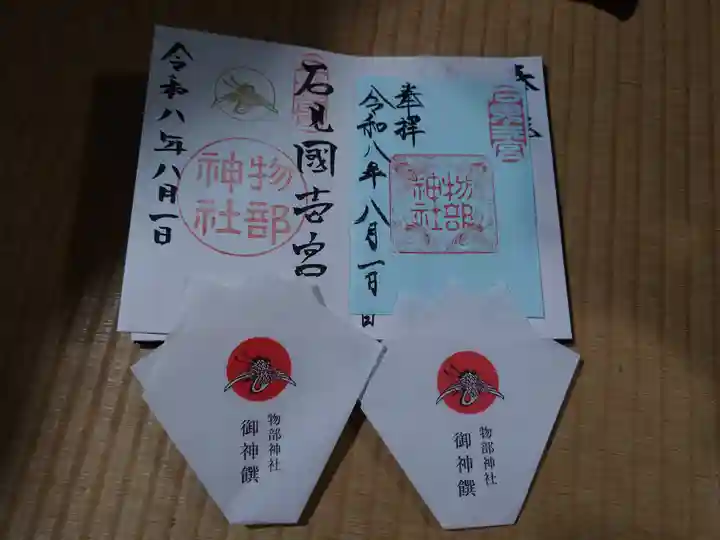 石見國壱宮
物部
神社
令和八年八月一日
奉拝
物部
神社
令和八年八月一日
物部神社
御神饌
物部神社
御神饌